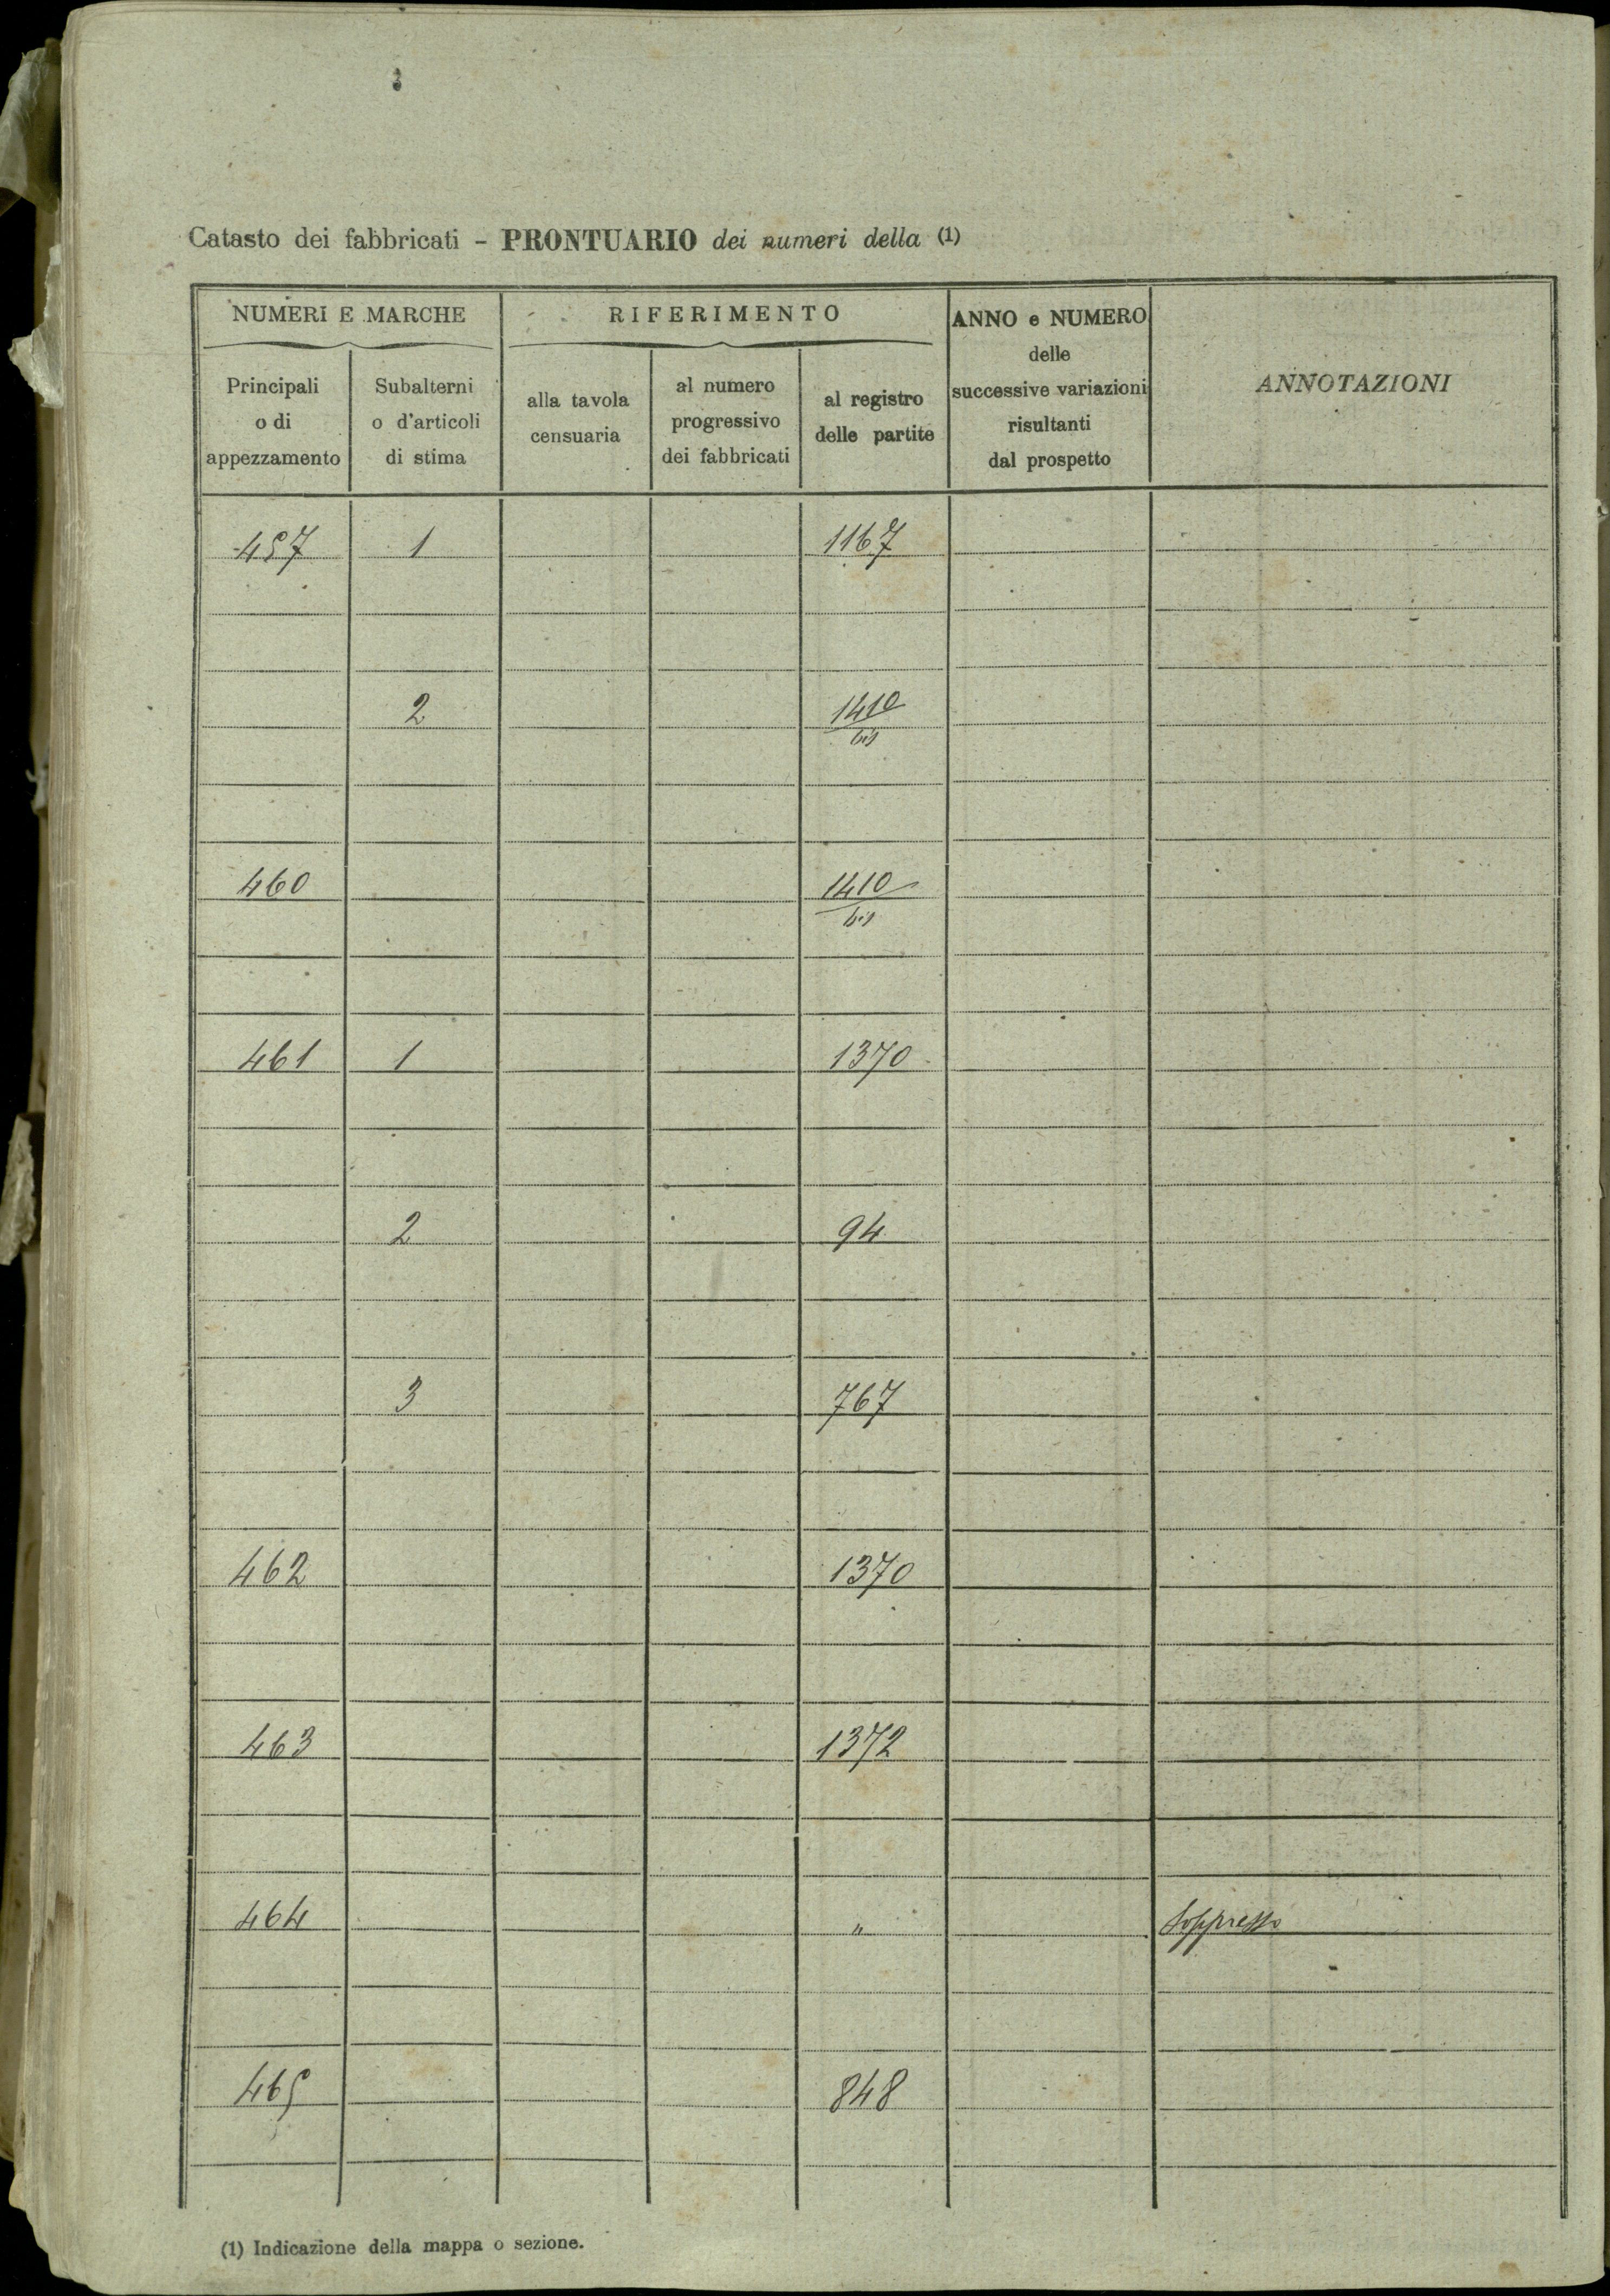 Catasto dei fabbricati - PRONTUARIO dei numeri della (1)
NUMERI E MARCHE
RIFERIMENTO
ANNO e NUMERO
delle
successive variazioni
risultanti
dal prospetto
ANNOTAZIONI
Principali
o di
appezzamento
Subalterni
o d'articoli
di stima
alla tavola
censuaria
al numero
progressivo
dei fabbricati
al registro
delle partite
457 1 1167
2 1410
bis
460 1410
bis
461 1 1370
2 94
3 767
462 1370
463 1372
464 " Soppresso
465 848
(1) Indicazione della mappa o sezione.